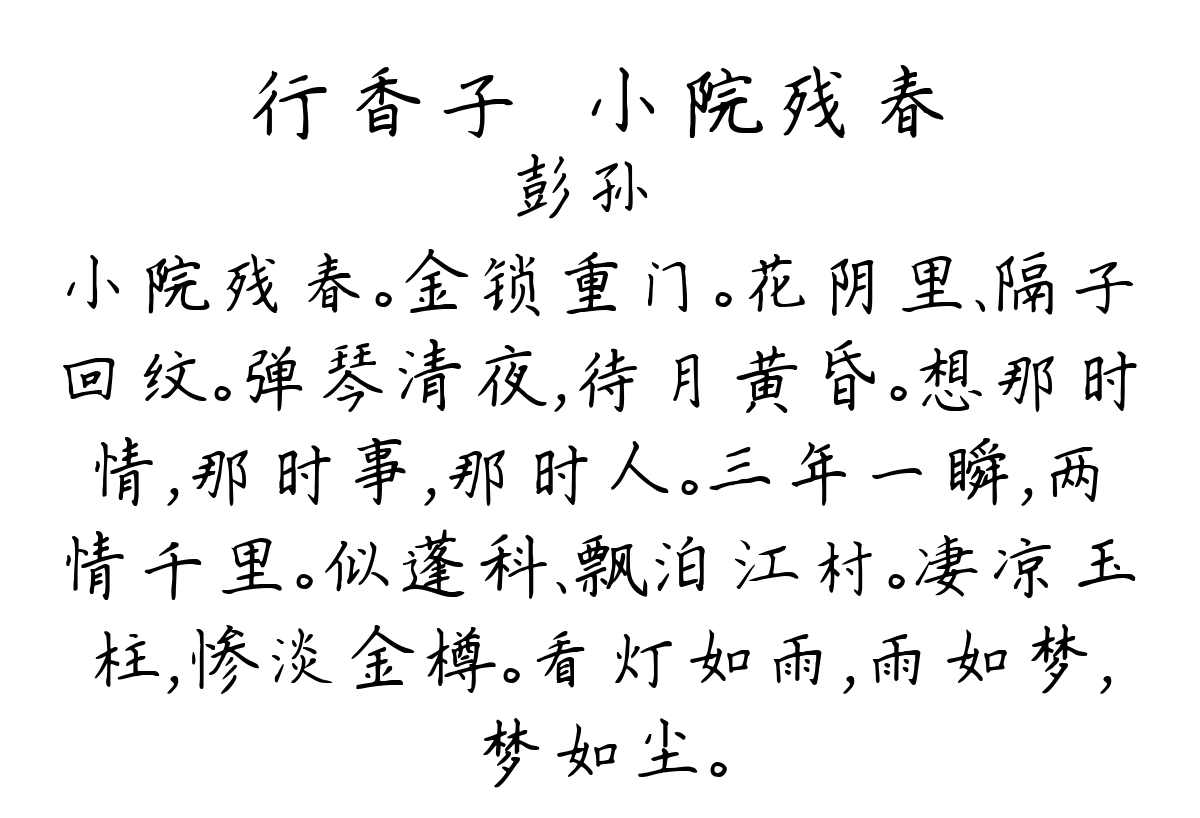 行香子 小院残春
彭孙
小院残春。金锁重门。花阴里、隔子
回纹。弹琴清夜,待月黄昏。想那时
情,那时事,那时人。三年一瞬,两
情千里。似蓬科、飘泊江村。凄凉玉
柱,惨淡金樽。看灯如雨,雨如梦,
梦如尘。